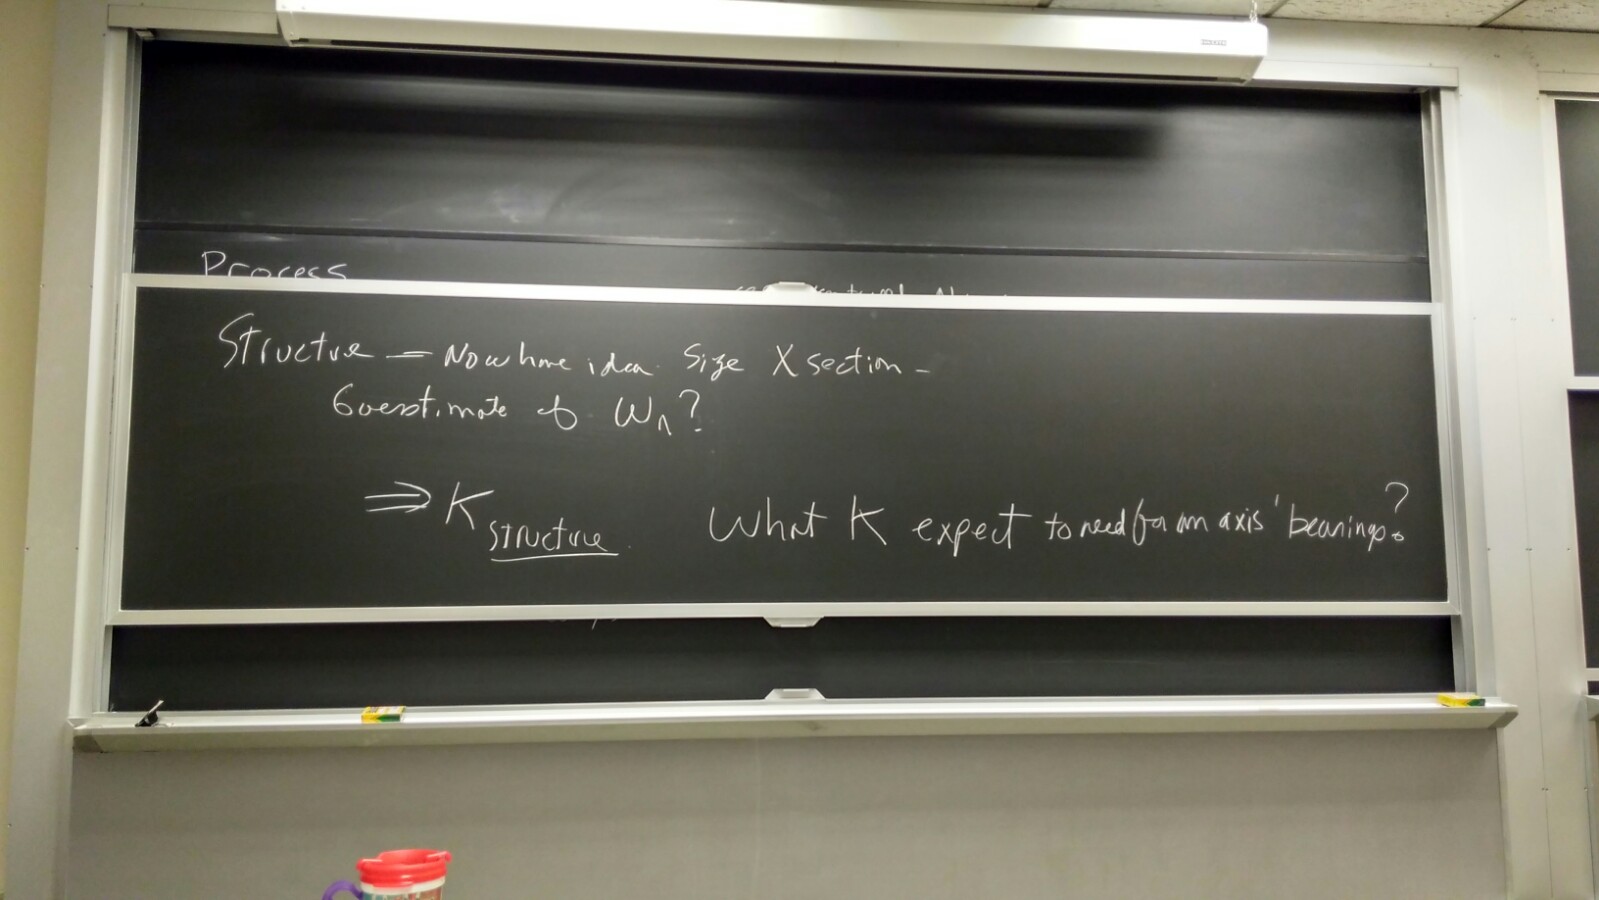 Process
Structure — Now have idea size X section -
Guestimate of ωn?
⇒ K structure What K expect to need for an axis' bearings?